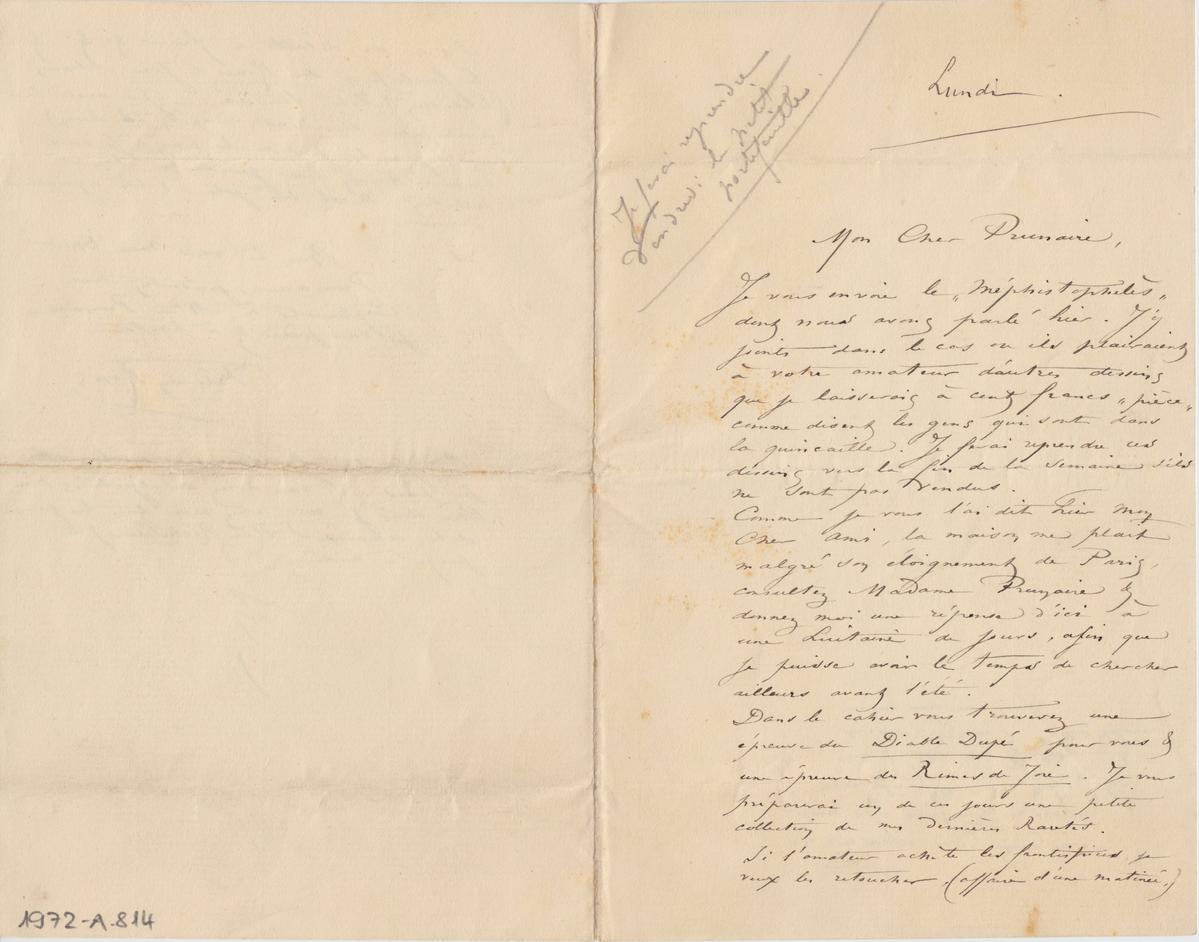 Lundi.
Je ferai reprendre
vendredi le petit
portefeuille.
Mon Cher Prunaire,
Je vous envoie le „Méphistophélès„
dont nous avons parlé hier. J'y
joints dans le cas ou ils plairaient
à votre amateur d'autres dessins
que je laisserais à cent francs „pièce„
comme disent les gens qui sont dans
la quincaille. Je ferai reprendre ces
dessins vers la fin de la semaine s'ils
ne sont pas vendus.
Comme je vous l'ai dit hier mon
cher ami, la maison me plait
malgré son éloignement de Paris,
consultez Madame Prunaire &
donnez moi une réponse d'ici à
une huitaine de jours, afin que
je puisse avoir le temps de chercher
ailleurs avant l'été.
Dans le cahier vous trouverez une
épreuve du Diable Dupé pour vous &
une épreuve des Rimes de Joie. Je vous
préparerai un de ces jours une petite
collection de mes dernières Raretés.
Si l'amateur achète les frontispices je
veux les retoucher. (affaire d'une matinée.)
1972-A.814